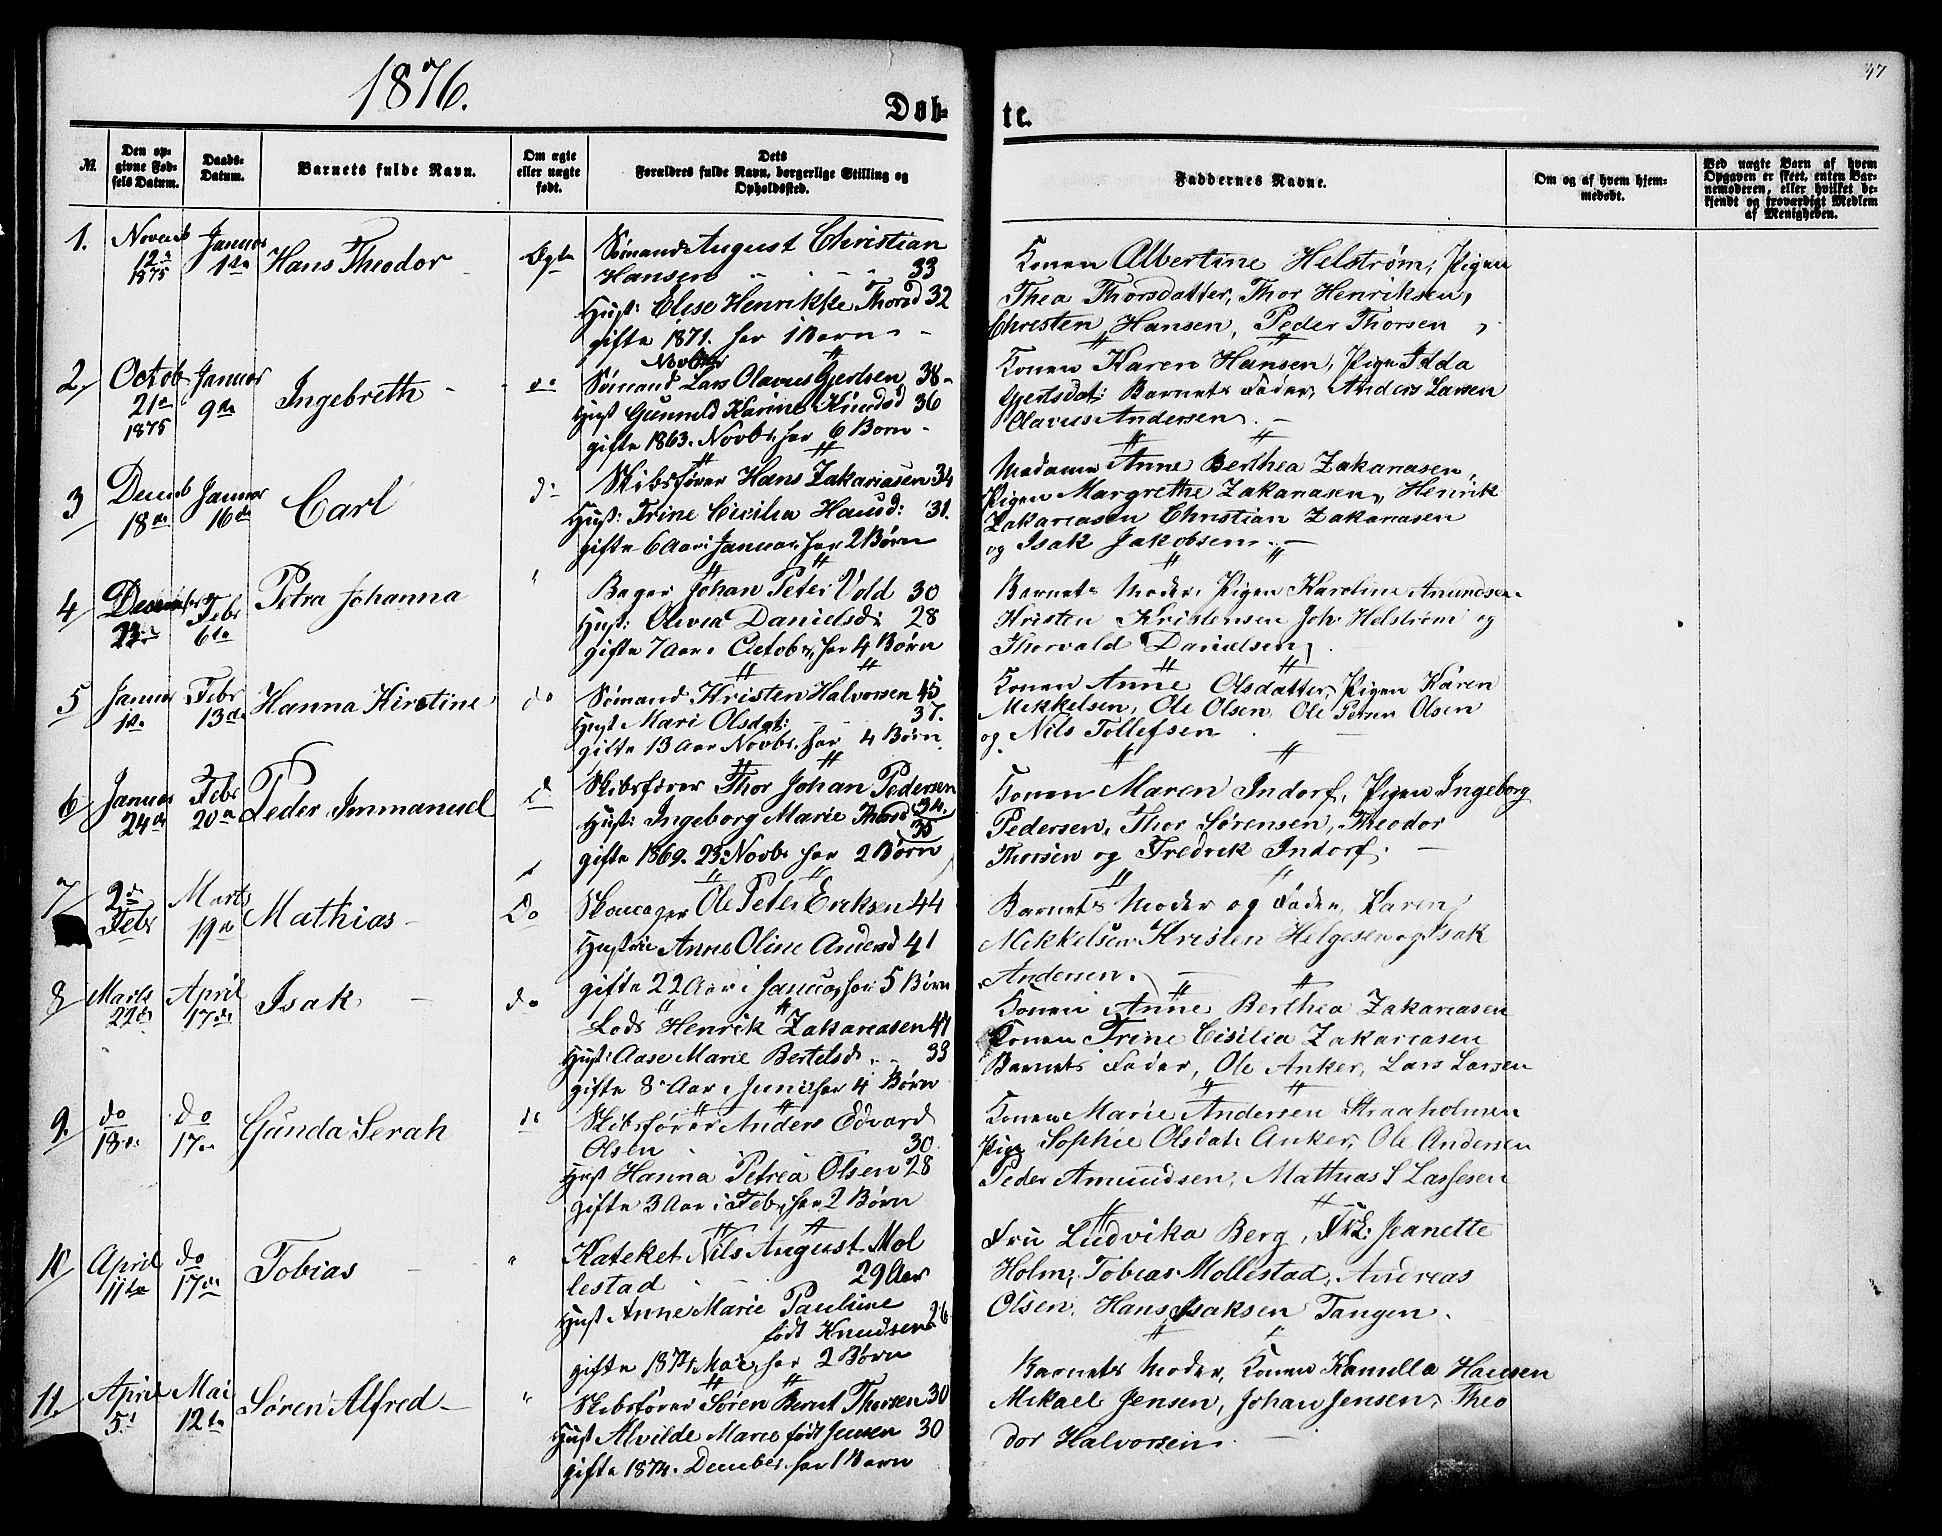 1876.
47
Døb-
te.
№.
Den op-
givne Fød-
sels Datum.
Daabs-
Datum.
Barnets fulde Navn.
Om ægte
eller uægte
født.
Dets
Forældres fulde Navn, borgerlige Stilling og
Opholdssted.
Faddernes Navne.
Om og af hvem hjem-
medøbt.
Ved uægte Børn af hvem
Opgaven er skeet, enten Bar-
nemoderen, eller hvilket be-
kjendt og troværdigt Medlem
af Menigheden.
1.
Novemb
12te
1875
Januar
1ste
Hans Theodor
Ægte
Sømand August Christian
Hansen 33
Hust: Elise Henrikke Thorsd 32
gifte 1871. har 1 Barn
Konen Albertine Helstrøm, Pigen
Thea Thorsdatter, Thor Henriksen,
Christen Hansen, Peder Thorsen
2
Octob
21de
1875
Januar
9de
Ingebreth
do
Sømand Lars Olavus Gjertsen 38
Hust Gunnild Karine Knudsd 36
gifte 1863. Novbr, har 6 Børn
Konen Karen Hansen, Pigen Idda
Gjertsdat: Barnets Fader, Anders Larsen
Olavus Andersen
3
Decemb
18de
Januar
16de
Carl
do
Skibsfører Hans Zakariasen 34
Hust: Trine Cicilia Hansd: 31.
gifte 6 Aar i Januar, har 2 Børn
Madame Anne Berthea Zakariasen,
Pigen Margrethe Zakariasen, Henrik
Zakariasen Christian Zakariasen
og Isak Jakobsen
4
December
23de
Febr
6te
Petra Johanna
"
Bager Johan Peter Vold 30
Hust: Olivea Danielsd: 28
gifte 7 Aar i Octobr, har 4 Børn
Barnets Moder, Pigen Karoline Amundsen
Kristen Kristensen Joh: Helstrøm og
Thorvald Danielsen
5
Januar
1ste
Febr
13de
Hanna Kirstine
do
Sømand Kristen Halvorsen 45
Hust Mari Olsdat: 37.
gifte 13 Aar Novbr, har 4 Børn
Konen Anne Olsdatter, Pigen Karen
Mikkelsen, Ole Olsen, Ole Persen Olsen
og Nils Tollefsen
6
Januar
24de
Febr
20de
Peder Immanuel
Do
Skibsfører Thor Johan Pedersen
34.
Hust: Ingeborg Marie Thorsd 35
gifte 1869. 23 Novbr har 2 Børn
Konen Maren Indorf, Pigen Ingeborg
Pedersen, Thor Sørensen, Theodor
Thorsen og Fredrik Indorf.
7
2de
Febr
Marts
19de
Mathias
Do
Skomager Ole Peter Eriksen 44
Hustru Anne Oline Andersd 41
gifte 22 Aar i Januar, har 5 Børn
Barnets Moder og Fader, Karen
Mikkelsen Kristen Helgesen og Isak
Andersen.
8
Marts
22de
April
17de
Isak
do
Lods Henrik Zakariasen 41
Hust: Aase Marie Bertelsd 33
gifte 8 Aar i Juni, har 4 Børn
Konen Anne Berthea Zakariasen
Konen Trine Cisilia Zakariasen
Barnets Fader, Ole Anker, Lars Larsen
9.
do
18de
do
17de
Gunda Serah
do
Skibsfører Anders Edvard
Olsen 30
Hust Hanna Petrea Olsen 28
gifte 3 Aar i Feb, har 2 Børn
Konen Marie Andersen Straaholmen
Pige Sophie Olsdat: Anker, Ole Andersen
Peder Amundsen, Mathias S Lassesen
10
April
11te
do
17de
Tobias
"
Kateket Nils August Mol
lestad 29 Aar
Hust Anne Marie Pauline
født Knudsen 26
gifte 1874, Mai, har 2 Børn
Fru Ludvika Berg, Frk: Jeanette
Holm, Tobias Mollestad, Andreas
Olsen, Hans Isaksen Tangen.
11.
April
5te
Mai
12te
Søren Alfred
"
Skibsfører Søren Bernt Thorsen 30
Hust Alvilde Marie født Jensen 30
gifte 1874. December, har 1 Barn
Barnets Moder, Konen Kamilla Hansen
Mikael Jensen, Johan Jensen, Theo
dor Halvorsen